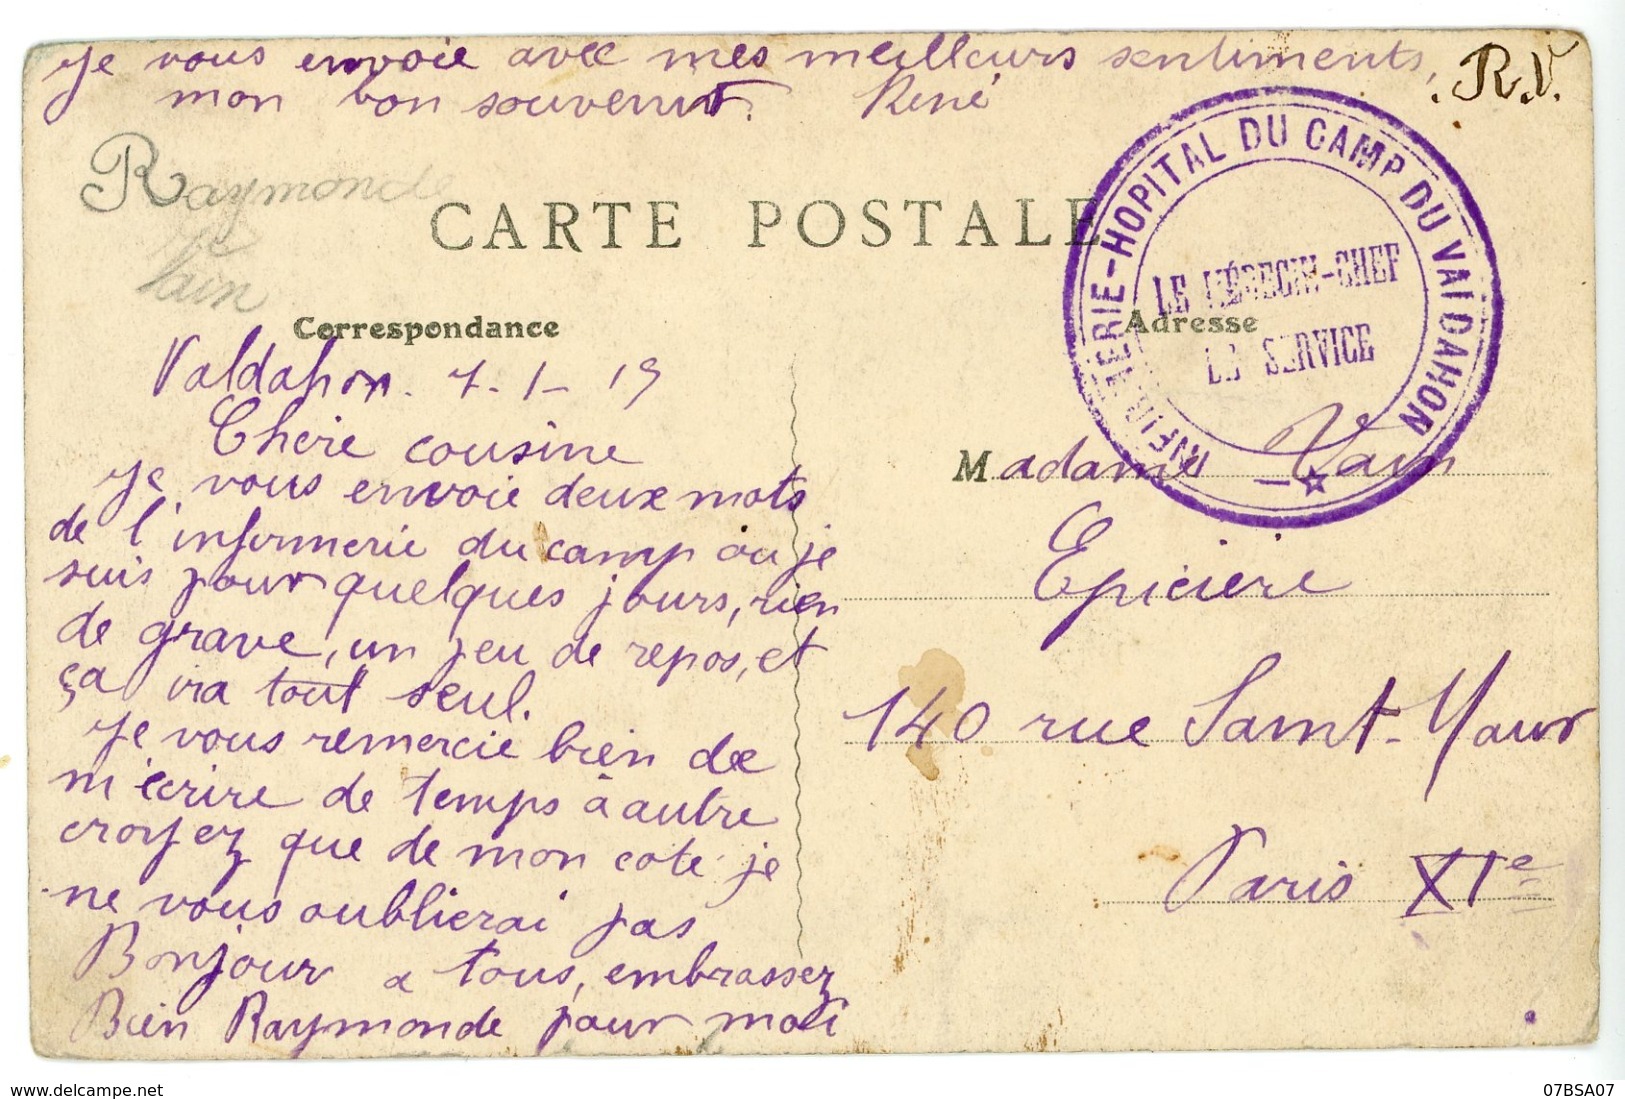 Je vous envoie avec mes meilleurs sentiments,
mon bon souvenir. René
R.V.
Raymonde
CARTE POSTALE
INFIRMERIE-HOPITAL DU CAMP DU VALDAHON
LE MÉDECIN-CHEF
DE SERVICE
Correspondance
Adresse
Valdahon. 7-1-19
Chère cousine
Je vous envoie deux mots
de l'infirmerie du camp ou je
suis pour quelques jours, rien
de grave, un peu de repos, et
ça ira tout seul.
Je vous remercie bien de
m'écrire de temps à autre
croyez que de mon coté je
ne vous oublierai pas
Bonjour a tous, embrassez
Bien Raymonde pour moi
Madame Vain
Epiciere
140 rue Saint-Maur
Paris XIe
www.delcampe.net
07BSA07